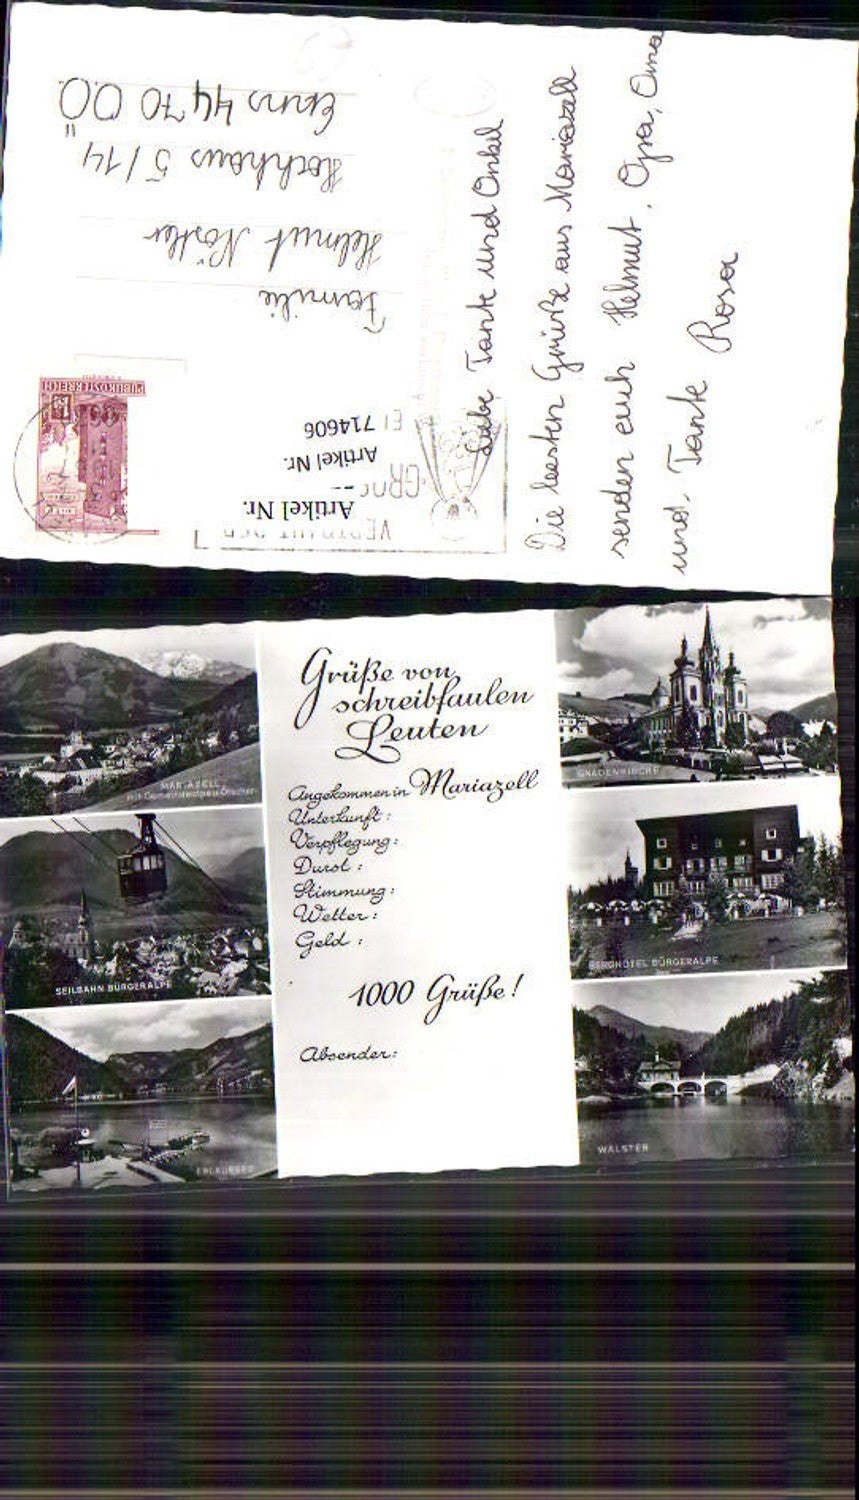 Familie
Helmut Nöstler
Hochhaus 5/14
Enns 4470 OÖ
REPUBLIK ÖSTERREICH
Artikel Nr.
Artikel Nr.
EL 714606
Liebe Tante und Onkel
Die besten Grüße aus Mariazell
senden euch Helmut, Opa, Oma
und Tante Rosa
Grüße von
schreibfaulen
Leuten
Angekommen in Mariazell
Unterkunft:
Verpflegung:
Durst:
Stimmung:
Wetter:
Geld:
1000 Grüße!
Absender:
MARIAZELL
mit Gemeindealpe u. Ötscher
SEILBAHN BÜRGERALPE
ERLAUFSEE
GNADENKIRCHE
BERGHOTEL BÜRGERALPE
WALSTER